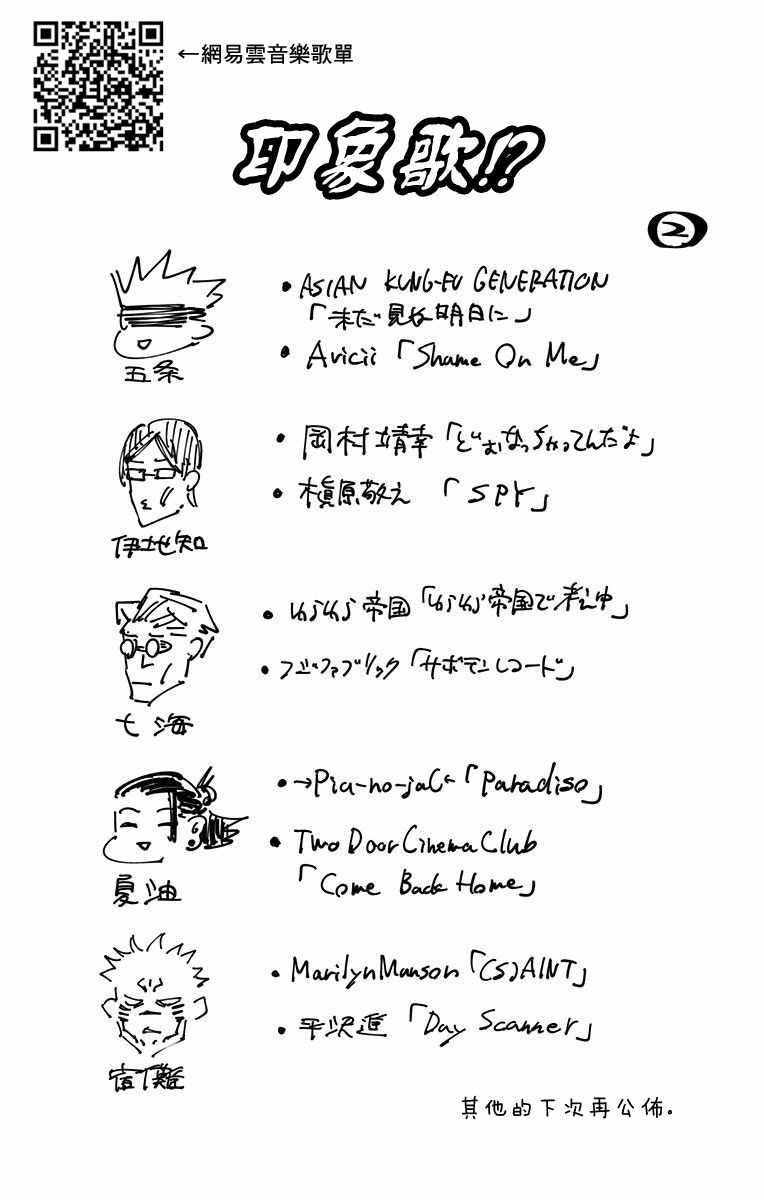 ←網易雲音樂歌單
印象歌!?
2
五条
・ASIAN KUNG-FU GENERATION
「未だ見ぬ明日に」
・Avicii「Shame On Me」
伊地知
・岡村靖幸「どおなっちゃってんだよ」
・槇原敬之「SPY」
七海
・ゆらゆら帝国「ゆらゆら帝国で考え中」
・フジファブリック「サボテンレコード」
夏油
・→Pia-no-jaC←「Paradiso」
・Two Door Cinema Club
「Come Back Home」
宿儺
・Marilyn Manson「(s)AINT」
・平沢進「Day Scanner」
其他的下次再公佈.